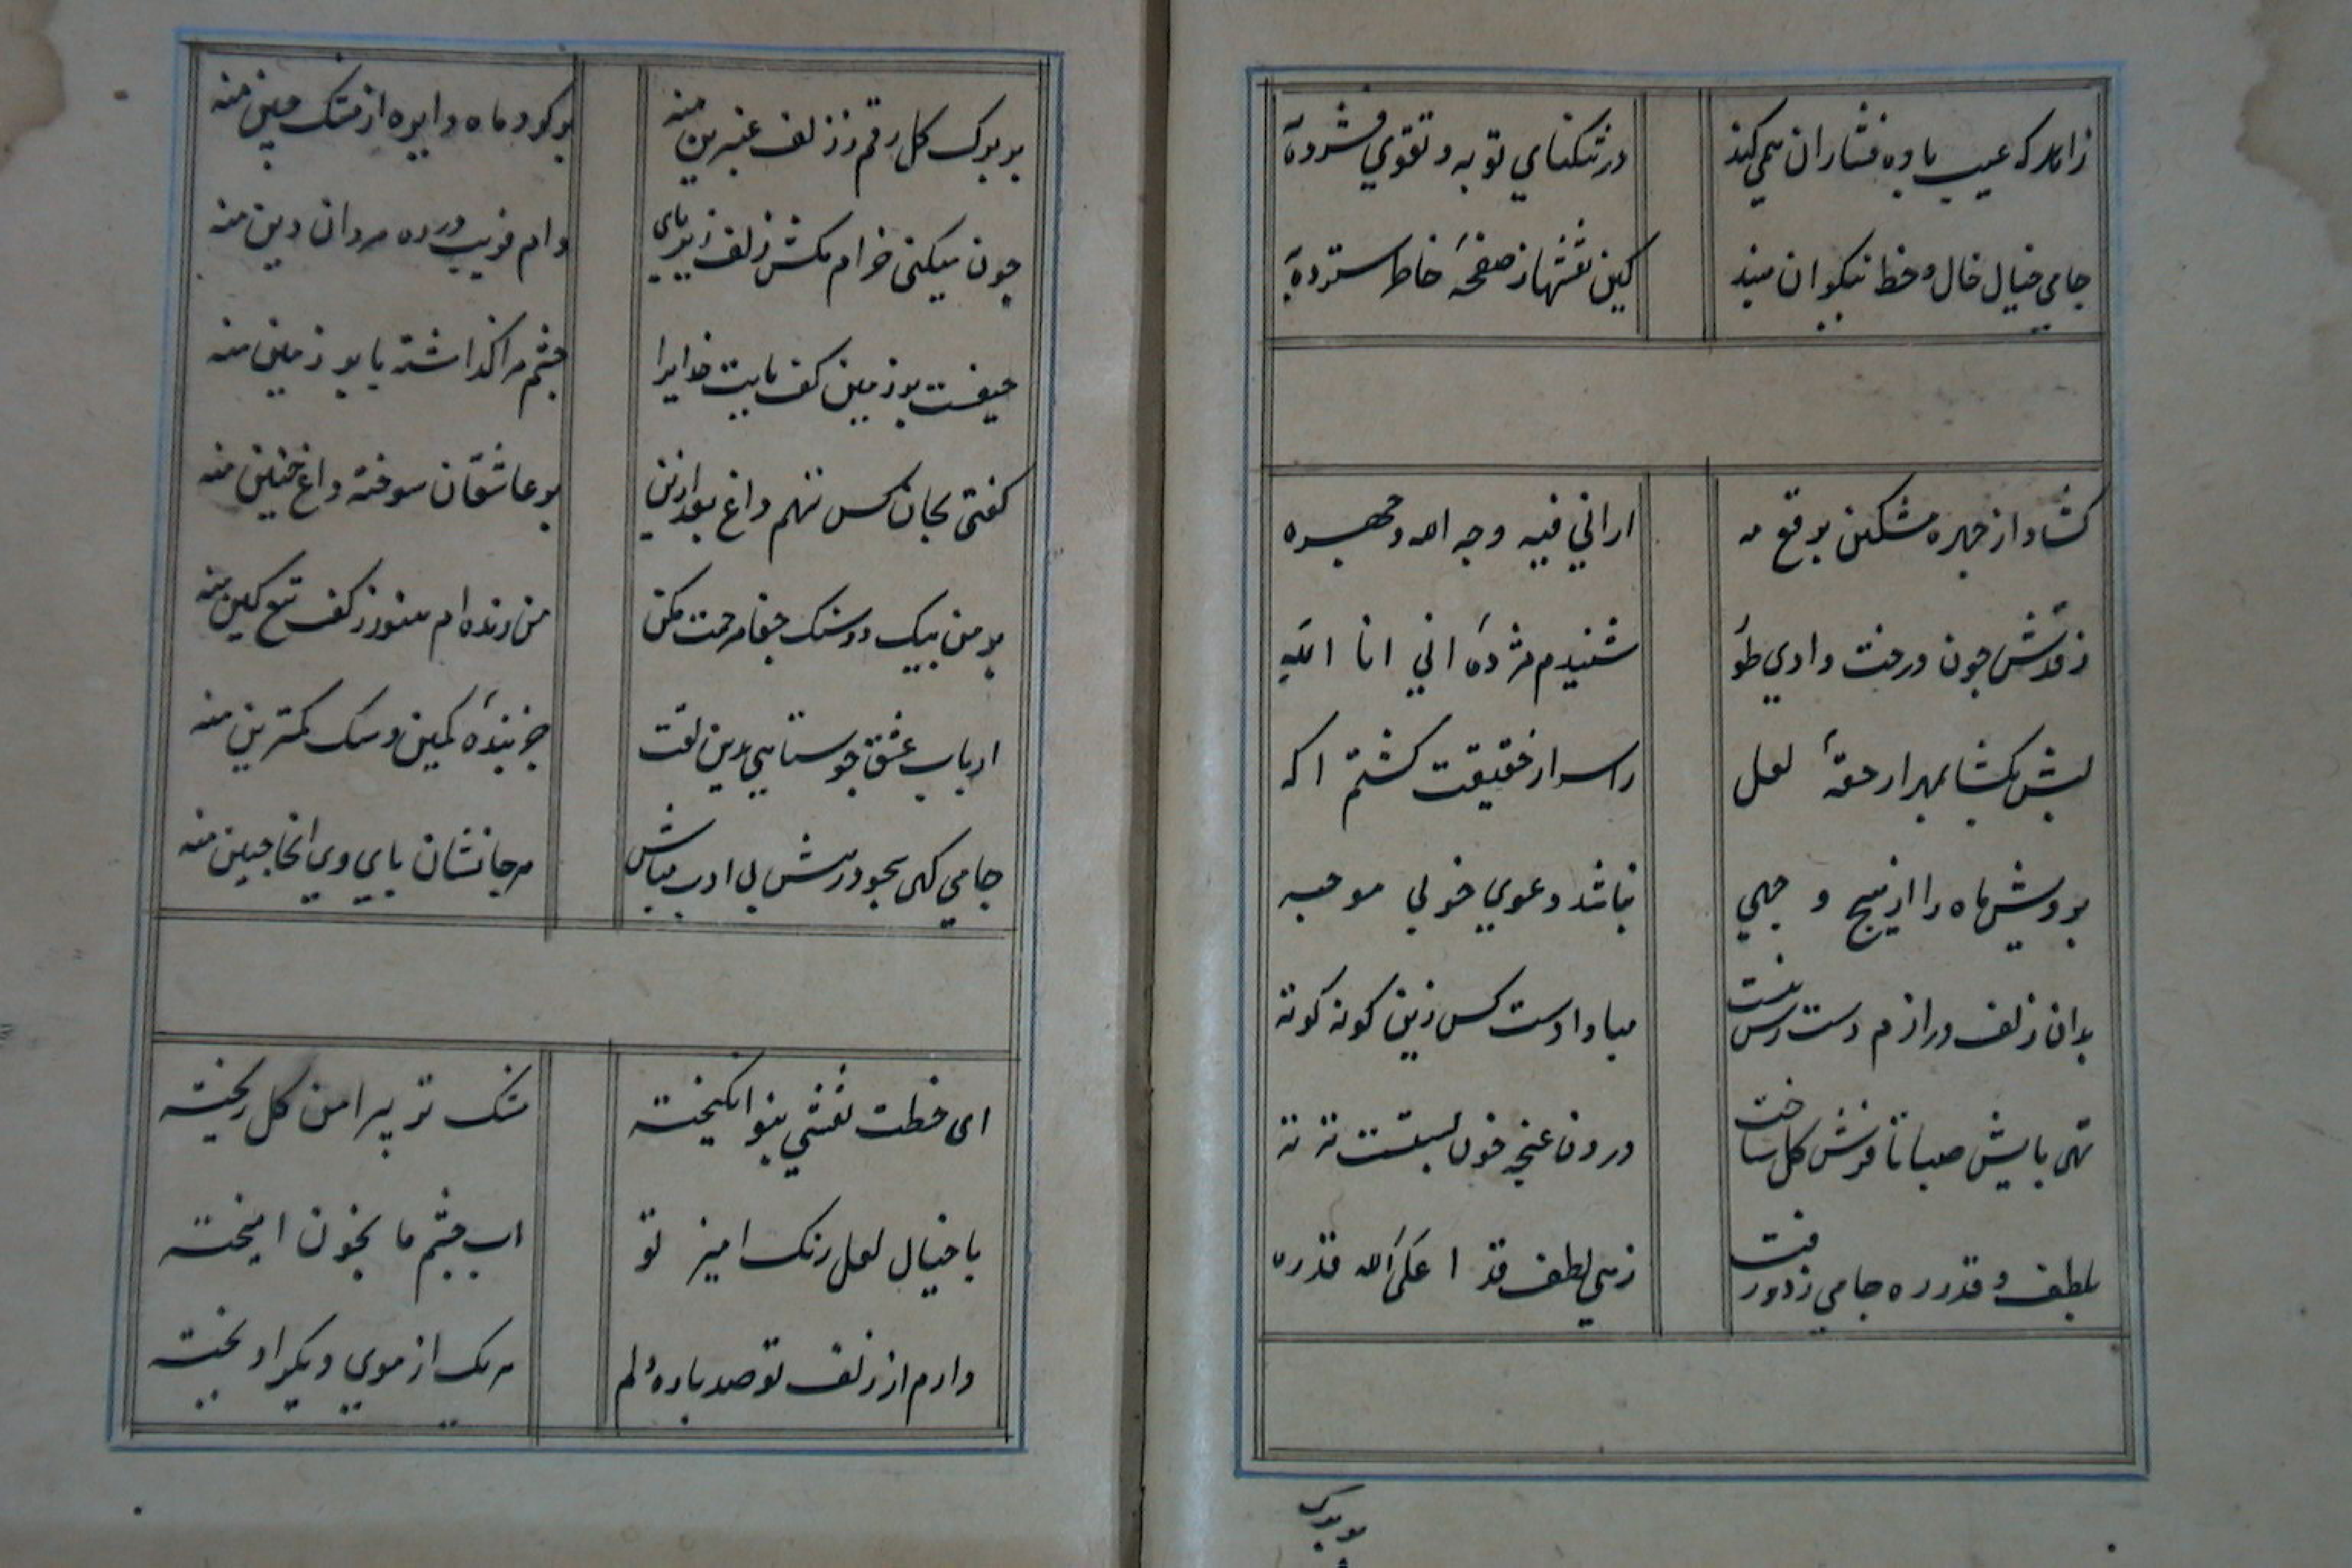 زاهد که عیب باده فشاران همی کند در تنکنای توبه و تقوی فشرده
جامی خیال خال و خط نیکوان مبند کین نقشها ز صفحهٔ خاطر سترده
کشاد از چهره مشکین برقع مه ارانی فیه وجه الله وجهره
ز قدش چون درخت وادی طور شنیدم مژدهٔ انی انا الله
لبش بکشا بهر ار حقهٔ لعل راسرار حقیقت کشتم اکه
بر ویش ماه را از هیچ وجهی نباشد دعوی خوبی موجه
بدان زلف درازم دست رس نیست مبادا دست کس زین کونه کوته
تهی پایش صبا تا فرش کل ساخت درون غنچه خون بستست ته ته
بلطف و قدر ره جامی ز دور رفت زهی لطف قد اعلی الله قدره
بر برک
بر برک کل رقم ز زلف عنبرین منه بر کرد ماه دایره از مشک چین منه
چون میکنی خرام مکش زلف زیر پای دام فریب در ره مردان دین منه
حیفست بر زمین کف پایت خدایرا چشم مرا کذاشته پا بر زمین منه
کفتی بجان کس ننهم داغ بعد ازین بر عاشقان سوخته داغ چنین منه
بر من بیک دو سنک جفا مرحمت مکن من زنده ام هنوز ز کف تیغ کین منه
ارباب عشق چو ستایی بدین لقت جز بندهٔ کمین و سک کمترین منه
جامی کهی سجود درش بی ادب مباش هر جا نشان پای وی انجا جبین منه
ای خطت نقشی بنو انکیخته مشک تر پیرامن کل ریخته
با خیال لعل رنک امیز تو اب چشم ما بخون امیخته
دارم از زلف تو صد پاره دلم هر یک از موی دیکر اویخته